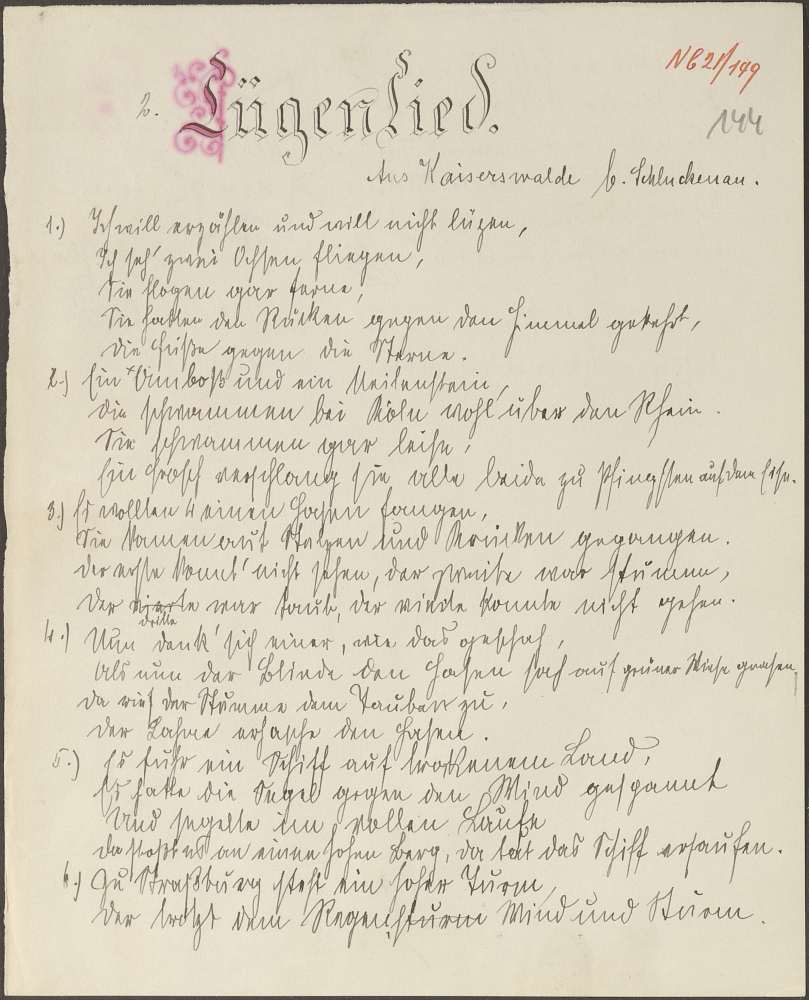 NC 21/149
144
2. Lügenlied.
Aus Kaiserswalde b. Schluckenau.
1.) Ich will erzählen und will nicht lügen,
Ich seh' zwei Ochsen fliegen,
Sie flogen gar ferne,
Sie hatten den Rücken gegen den Himmel gekehrt,
Die Füße gegen die Sterne.
2.) Ein Amboß und ein Meilenstein,
Die schwammen bei Köln wohl über den Rhein.
Sie schwammen gar leise,
Ein Frosch verschlang sie alle beide zu Pfingsten auf dem Eise.
3.) Es wollten 4 einen Hasen fangen,
Sie kamen auf Stelzen und Krücken gegangen.
Der erste konnt' nicht sehen, der zweite war stumm,
Der vierte war taub, der vierte konnte nicht gehen.
dritte
4.) Nun denk' sich einer, wie das geschah,
Als nun der Blinde den Hasen sah auf grüner Wiese grasen,
Da rief der Stumme dem Tauben zu,
Der Lahme erhasche den Hasen.
5.) Es fuhr ein Schiff auf trockenem Land,
Es hatte die Segel gegen den Wind gespannt
Und segelte im vollen Laufe
Da stoßt es an einen hohen Berg, da tat das Schiff ersaufen.
6.) Zu Straßburg steht ein hoher Turm,
Der trotzt dem Regensturm Wind und Sturm.